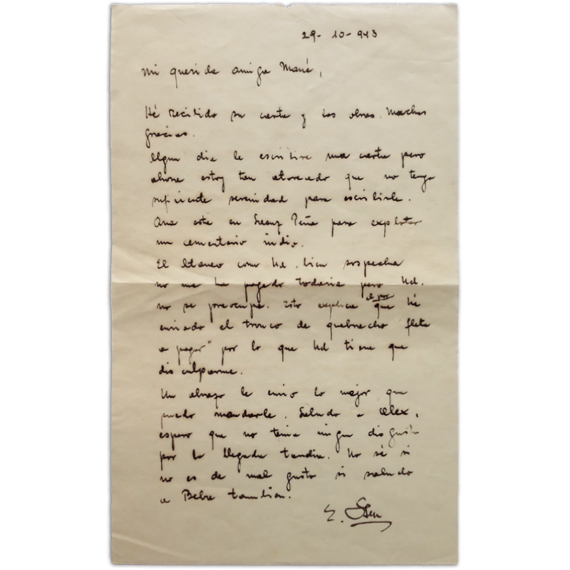 29-10-943
Mi querida amiga Mané,
Hé recibido su carta y los obras. Muchas
gracias.
Algun dia le escribire una carta pero
ahora estoy tan atareado que no tengo
suficiente serenidad para escribirle.
Ana esta en Saenz Peña para explotar
un cementerio indio.
El como Ud. bien sospecha
no me ha pagado todavia pero Ud.
no se preocupe. Esto explica el por que hé
enviado el tronco de quebracho flete
a pagar" por lo que Ud tiene que
disculparme.
Un abrazo le envio lo mejor que
puedo mandarle. Saludo a Alex,
espero que no tenia ningun disgusto
por la llegada tardia. No sé si
no es de mal gusto si saludo
a Bebe tambien.